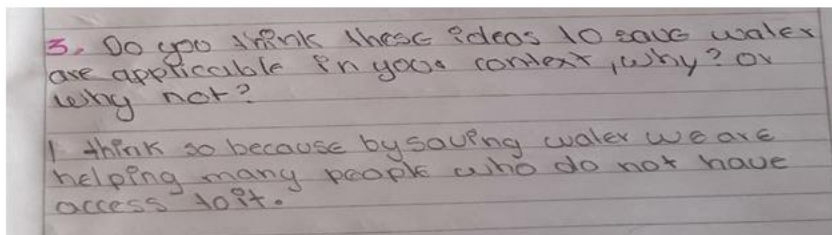 3. Do you think these ideas to save water
are applicable in your context, why? or
why not?
I think so because by saving water we are
helping many people who do not have
access to it.